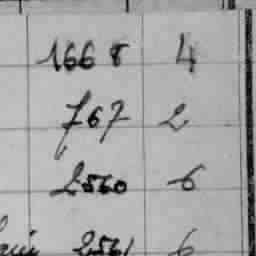 1668 4
767 2
2560 6
2561 6